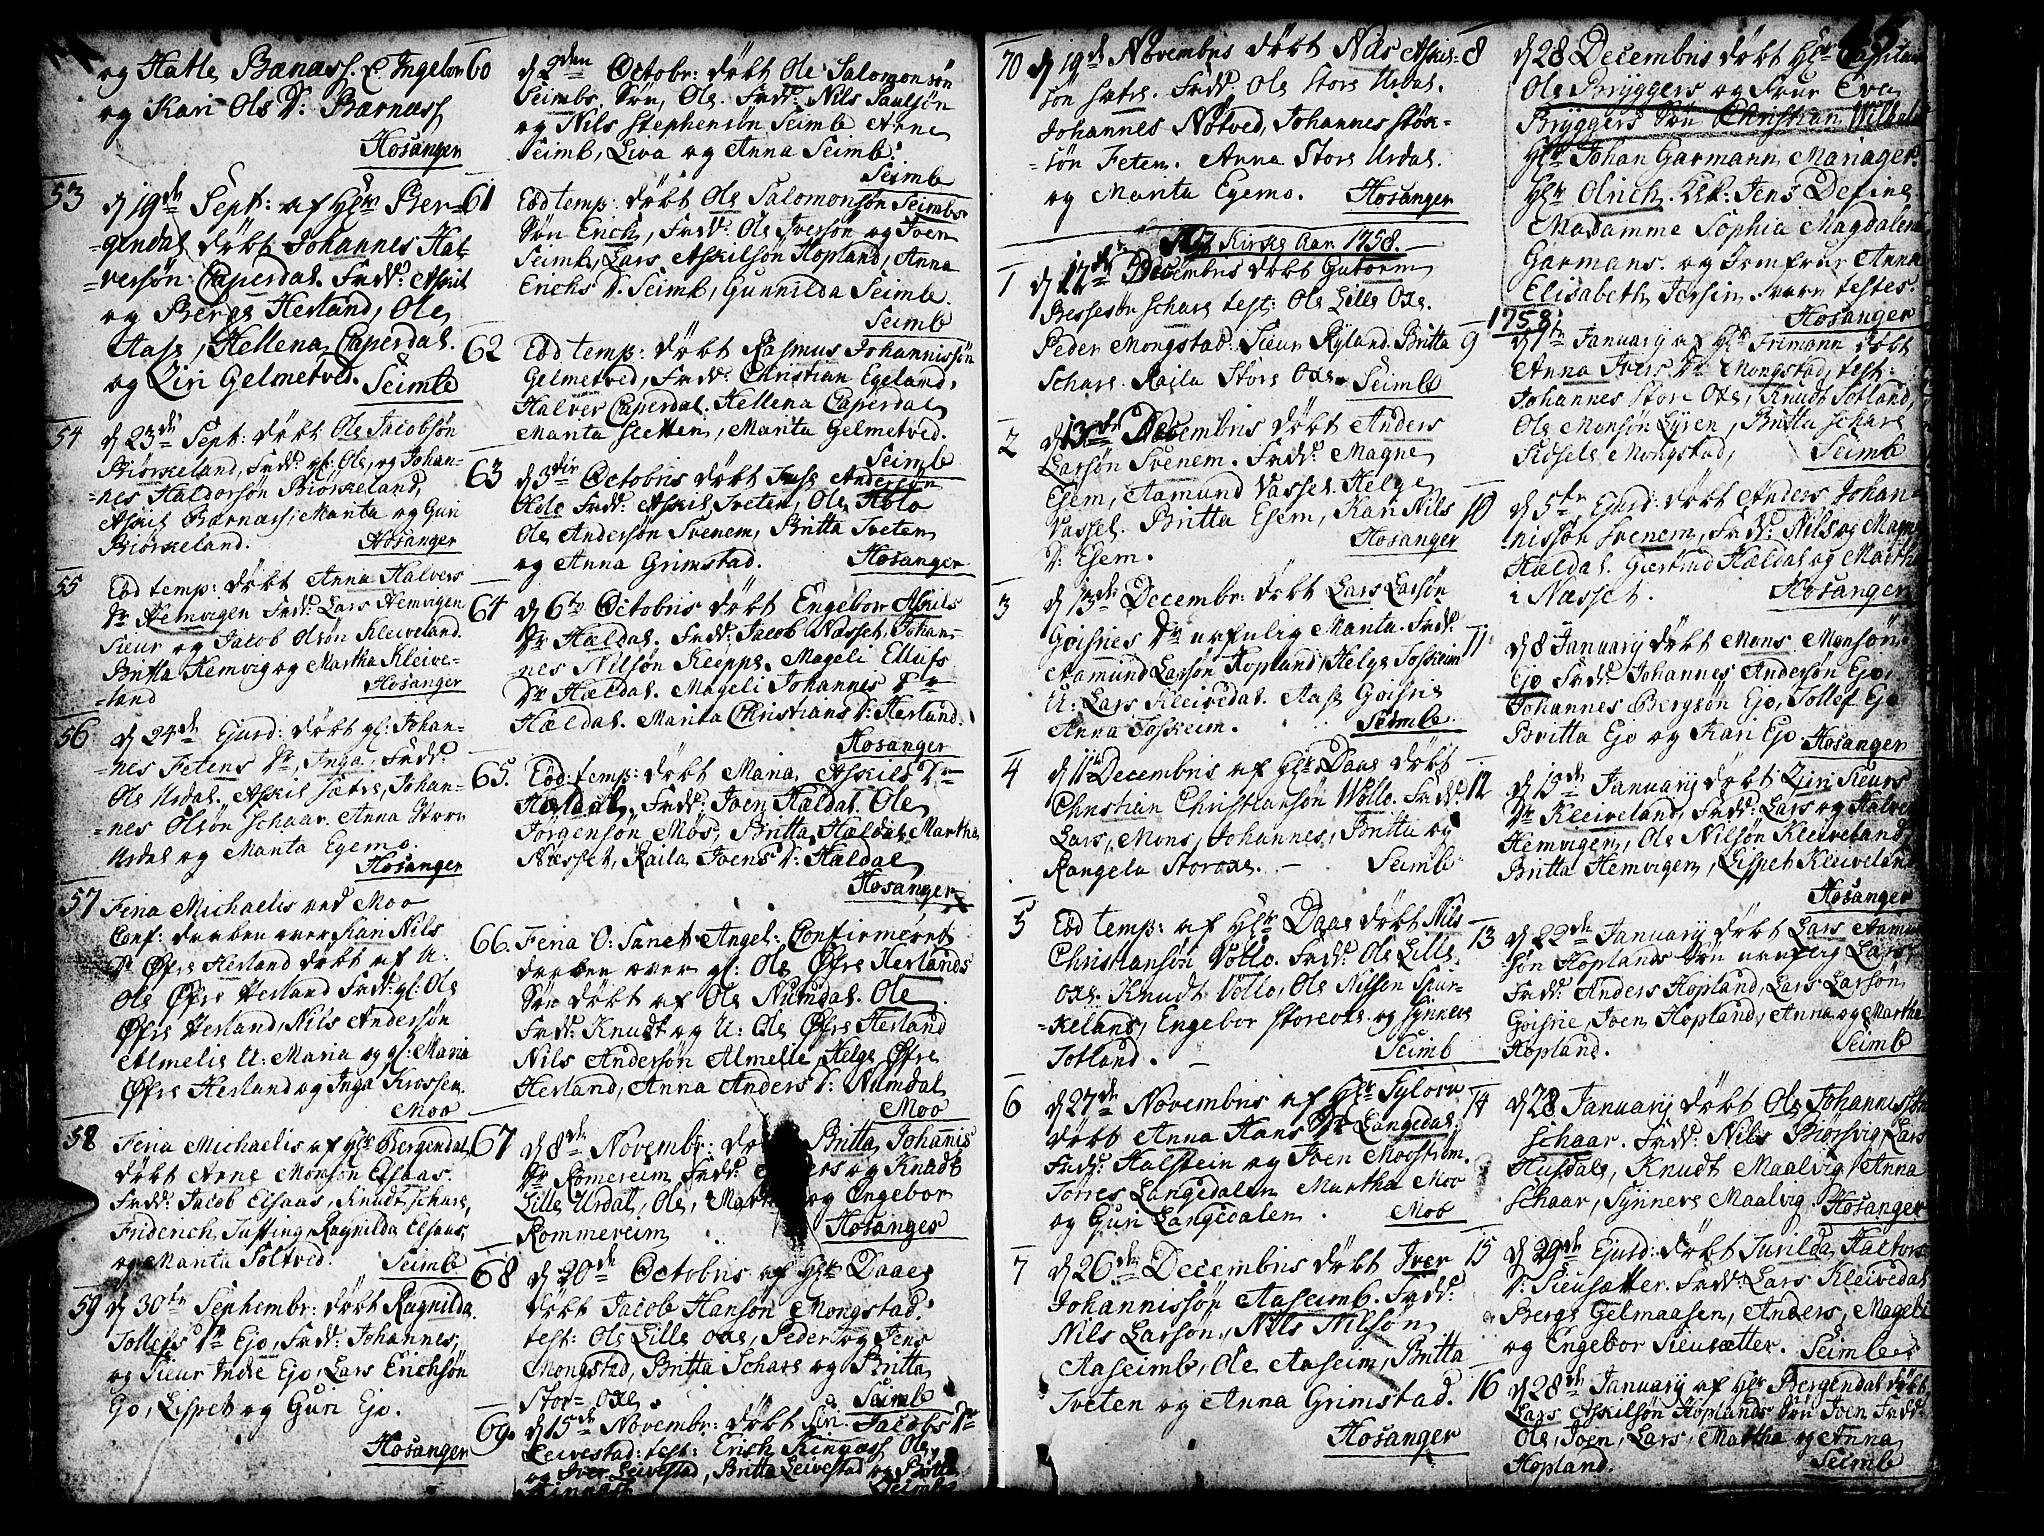 og Halle Barnass. & Ingebor
og Kari Ols Dr: Barnass
Hosanger
53 d 19de Sept: af Hlr Ber=
=gendal døbt Johannes Hal=
=versøn Caperdal. Fadd: Askiel
og Berge Herland, Ole
Aase, Hellena Caperdal.
og Ziri Gelmetved. Seimb
54 d 23de Sept: døbt Ole Jacobsøn
Biørkeland, Fadd: gl: Ole, og Johan=
=nes Haldorsøn Biørkeland,
Askiel Barnass, Marita og Guri
Biørkeland. Hosanger
55 Eod temp: døbt Anna Halvers
Dr Hemvigen Fadd: Lars Hemvigen
Sieur og Jacob Olsøn Kleiveland.
Britta Hemvig og Martha Kleive=
=land Hosanger
56 d 24de Ejusd: døbt gl: Johan=
=nes Fetens Dr, Inga, Fadd:
Ole Urdal, Askiel Sætre, Johan=
=nes Olsøn Schaar. Anna Store
Urdal og Marita Egemo.
Hosanger
57 Feria Michaelis ved Moo
Conf: daaben over Kari Nils
Dr Øfre Herland døbt af U:
Ole Øfre Herland Fadd: gl: Ole
Øfre Herland, Nils Andersøn
Almelie U: Maria og gl: Maria
Øfre Herland og Inga Krossen.
Moo
58 Feria Michaelis af Hlr Bergendal
døbt Arne Monsøn Elsaas.
Fadd: Jacob Elsaas, Knudt Schare,
Friderich Justing, Ragnilda Elsaas,
og Marita Soltved. Seimb
59 d 30te Septembr: døbt Ragnilda
Tollefs Dr Ejo, Fadd: Johannes,
og Sieur Indre Ejo, Lars Erichsøn
Ejo, Lispet og Guri Ejo.
Hosanger
60 d 2den Octobr: døbt Ole Salomonsøn
Seimbs Søn, Ole. Fadd: Nils Paulsøn
og Nils Stephensøn Seimb Arne
Seimb, Liva og Anna Seimb.
Seimb
61 Eod temp: døbt Ole Salomonsøn Seimbs
Søn Erich, Fadd: Ole Iversøn og Joen
Seimb, Lars Askilsøn Hopland, Anna
Erichs Dr. Seimb, Gunnilda Seimb.
Seimb
62 Eod temp: døbt Rasmus Johannissøn
Gelmetved, Fadd: Christian Egeland,
Halver Caperdal. Hellena Caperdal
Marita Sletten, Marita Gelmetved.
Seimb
63 d 3die Octobris døbt Andersøn
Holo Fadd: Askiel Tveten, Ole Holo
Ole Andersøn Svenem, Britta Tveten
og Anna Grimstad. Hosanger
64 d 6te Octobris døbt Engebor Askils
Dr Hældal. Fadd: Jacob Næsset, Johan=
nes Nilsøn Keippe. Mageli Ellufs
Dr Hældal. Mageli Johannes Dr
Hældal. Marita Christians Dr: Herland.
Hosanger
65. Eod: temp: døbt Maria Askiels Dr
Hældal, Fadd: Joen Hældal. Ole
Jørgensøn Mos, Britta Hældal, Martha
Næsset, Raila Joens Dr: Hældal
Hosanger
66. Feria O: Sanct Angel: Confirmeret
daaben over gl: Ole Øfre Herlands
Søn døbt af Ole Numdal. Ole
Fadd: Knudt og U: Ole Øfre Herland
Nils Andersøn Almelie Helge Øfre
Herland, Anna Anders Dr: Numdal
Moo
67 d 8de Novembr: døbt Britta Johanis
Dr Romereim Fadd: og Knudt
Lille Urdal, Ole, og Engebor
Rommereim Hosanger
68 d 20de Octobris af Hlr Daae
døbt Jacob Hansøn Mongstad.
test: Ole Lille oxe, Peder og Jens
Mongstad, Britta Schare og Britta
Stor= oxe. Seimb
69. d 15de Novembr: døbt Siri Jacobs Dr
Leivestad: test: Erich Kinnass Ole
og Iver Leivestad, Britta Leivestad og Britta
Kinnass Seimb
70 d 19de Novembris døbt Nils Askiel=
søn Sætre. Fadd: Ole Store Urdal.
Johannes Nøtved, Johannes Støn=
=søn Feten. Anna Store Urdal.
og Marita Egemo. Hosanger
Nyt Kirke Aar 1758.
1 d 12te Decembris døbt Gutorm
Bessesøn Schare test: Ole Lille Oxe.
Peder Mongstad. Sieur Ryland. Britta
Schare. Raila Store Oxe. Seimb
2 d 13de Decembris døbt Anders
Larsøn Svenem. Fadd: Magne
Esem, Aamund Vassel. Helge
Vassel. Britta Esem, Kari Nils
Dr: Esem. Hosanger
3 d 13de Decembr: døbt Lars Larsøn
Goisnes Dr uafulig Marita. Fadd:
Aamund Larsøn Hopland, Helge Toskeim
U: Lars Kleivedal. Aase Goisrie
Anna Toskeim. Seimb
4 d 11te Decembris af Hlr Daae døbt
Christian Christiansøn Vollo. Fadd:
Lars, Mons, Johannes, Britta og
Rangela Storoxe. Seimb
5 Eod temp: af Hlr Daae døbt Nils
Christiansøn Vollo. Fadd: Ole Lille
oxe. Knudt Vollo, Ole Nilsen Spur=
=keland, Engebor Storoxe. og Synneve
Totland. Seimb
6 d 27de Novembris af Hlr Sylow
døbt Anna Hans Dr Langedal.
Fadd: Halstein og Joen Mostrøm.
Torres Langedalen Martha Moo
og Guri Langedalen. Moo
7 d 26de Decembris døbt Iver
Johannissøn Aaseimb. Fadd:
Nils Larsøn, Nils Nilsøn
Aaseimb, Ole Aaseim, Britta
Tveten og Anna Grimstad.
Hosanger
8 d 28 Decembris døbt Hlr Capitain
Ole Brÿggers og Frue Eva
Brÿggers Søn Christian Wilhelm
Hlr Johan Garmann Manager.
Hlr Olrich. Jens Define
Madamme Sophia Magdalena
Garmans. og Jomfrue Anna
Elisabeth Jersin vare testes.
Hosanger
1758
9 d 1te January af Hlr Frimann døbt
Anna Ivers Dr Mongstad, test:
Johannes Store Oxe, Knudt Totland,
Ole Monsøn Lyren, Britta Schare
Sidsele Mongstad, Seimb
10 d 5te Ejusd: døbt Anders Johan=
nissøn Svenem, Fadd: Nils og Magne
Hældal. Giertrud Hældal og Martha
i Næsset. Hosanger
11 d 8 January døbt Mons Monsøn
Ejo Fadd: Johannes Andersøn Ejo,
Johannes Bergsøn Ejo, Tollef Ejo
Britta Ejo og Kari Ejo. Hosanger
12 d 15de January døbt Ziri Sieurs
Dr Kleiveland, Fadd: Lars og Halver
Hemvigen, Ole Nilsøn Kleiveland,
Britta Hemvigen, Lispet Kleiveland
Hosanger
13 d 22de January døbt Lars Aamund
søn Hoplands Søn Lars
Fadd: Anders Hopland, Lars Larsøn
Goisrie, Joen Hopland, Anna og Martha
Hopland. Seimb
14 d 28 January døbt Ole Johannissøn
Schaar. Fadd: Nils Biørsvig, Lars
Husdale, Knudt Maalvig, Anna
Schaar, Synneve Maalvig. Hosanger
15 d 29de Ejusd: døbt Turilda Haltors
Dr: Sieusætter. Fadd: Lars Kleivedal
Berge Gelmaasen, Anders, Mageli
og Engebor Sieusætter. Seimb
16 d 28de January af Hlr Bergendal døbt
Lars Askilsøn Hoplands Søn Joen Fadd:
Ole, Joen, Lars, Martha og Anna
Hopland. Seimb